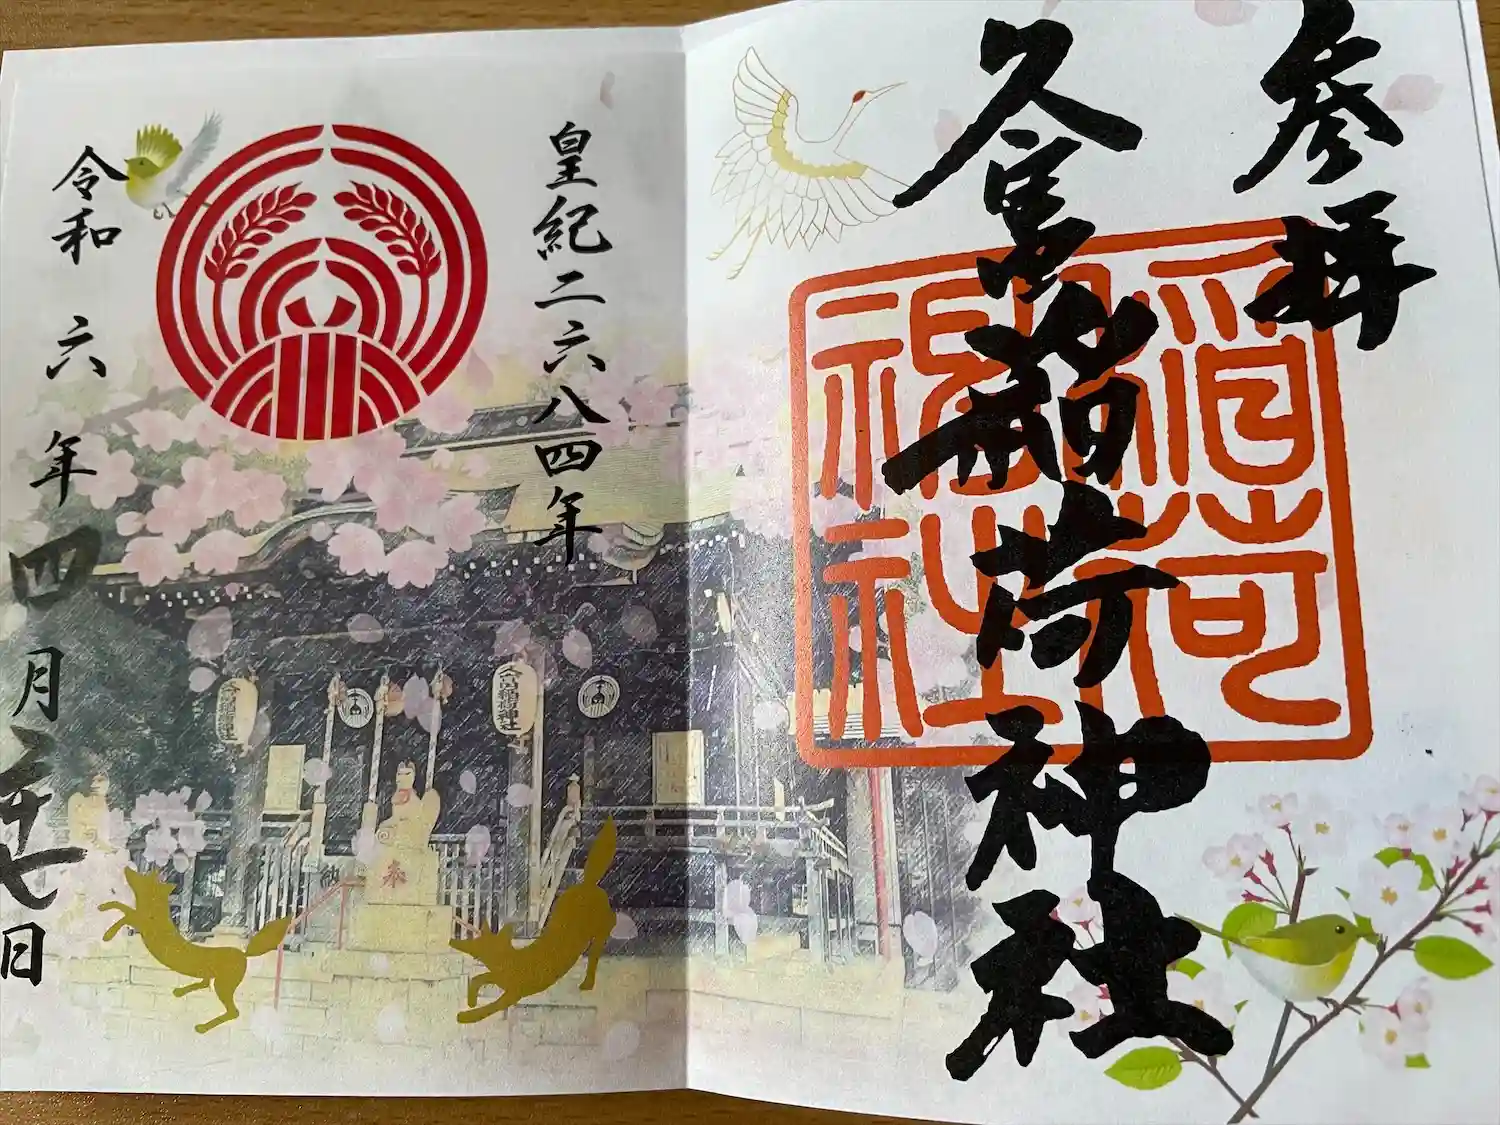 参拝
久富稲荷神社
稲荷
神社
皇紀二六八四年
令和六年四月二十七日
久富稲荷神社
久富稲荷神社
奉
納